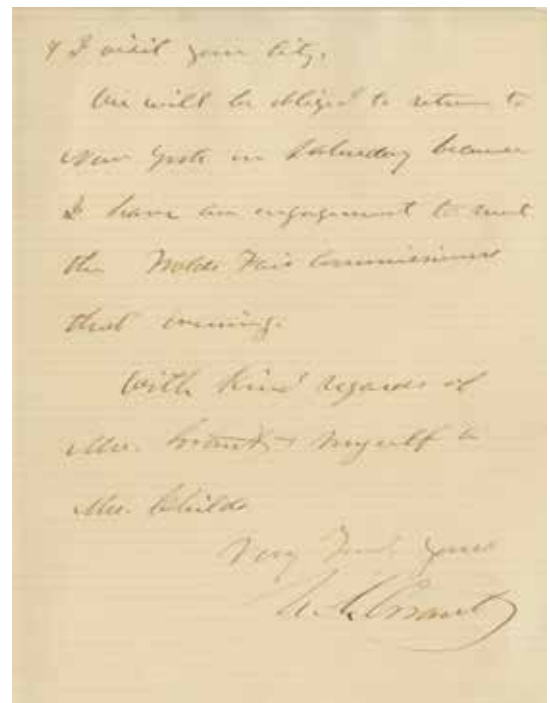 & I visit your City.
We will be obliged to return to
New York on Saturday because
I have an engagement to meet
the Worlds Fair Commissioners
that evening.
With kind regards of
Mrs. Grant & myself to
Mrs. Childs
Very Truly yours
U. S. Grant